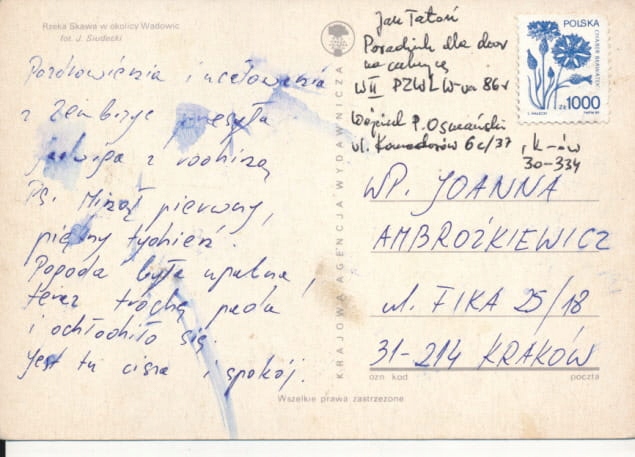 Rzeka Skawa w okolicy Wadowic
fot. J. Siudecki
Pozdrowienia i ucałowania
z Zembrzyc przesyła
Jadwiga z rodziną
Ps. Minął pierwszy,
piękny tydzień.
Pogoda była upalna,
teraz trochę pada
i ochłodziło się.
Jest tu cisza i spokój.
KRAJOWA AGENCJA WYDAWNICZA
Jan Tatoń
Poradnik dla
na
W II PZWL W-wa 86r
Wojciech P.
ul. Komandosów 6c/37, K-ów
30-334
POLSKA
CHABER BŁAWATEK
zł 1000
WP. JOANNA
AMBROŻKIEWICZ
ul. FIKA 25/18
31-214 KRAKÓW
ozn kod poczta
Wszelkie prawa zastrzeżone